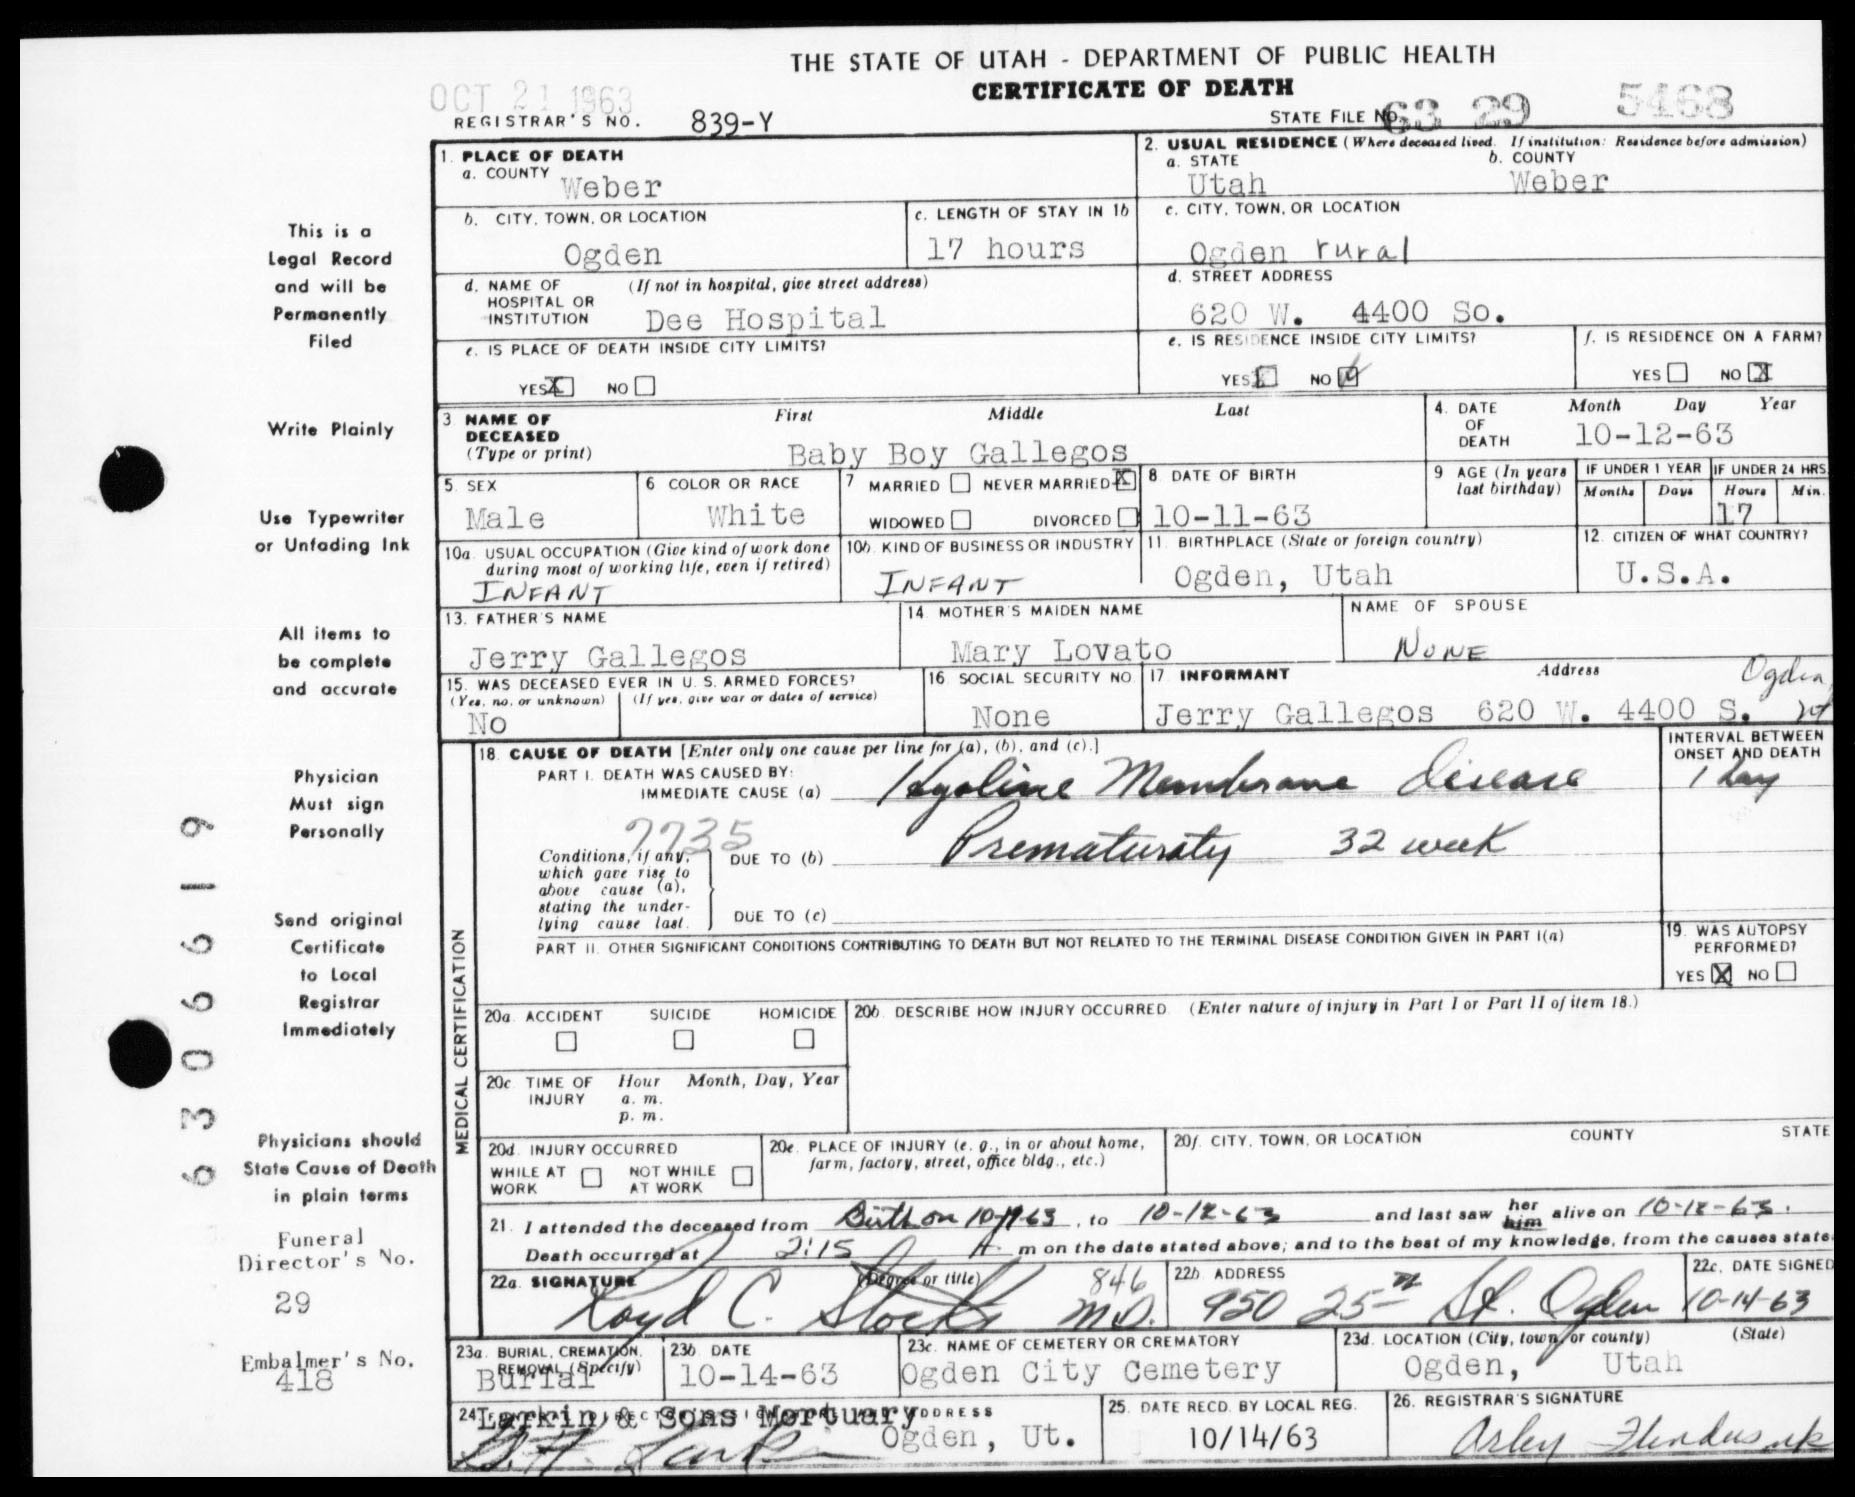 THE STATE OF UTAH - DEPARTMENT OF PUBLIC HEALTH
CERTIFICATE OF DEATH
OCT 21 1963
REGISTRAR'S NO. 839-Y
STATE FILE NO. 63 29 5468
1. PLACE OF DEATH
a. COUNTY
Weber
2. USUAL RESIDENCE (Where deceased lived. If institution: Residence before admission)
a. STATE b. COUNTY
Utah Weber
b. CITY, TOWN, OR LOCATION
Ogden
c. LENGTH OF STAY IN 1b
17 hours
c. CITY, TOWN, OR LOCATION
Ogden rural
d. NAME OF HOSPITAL OR INSTITUTION (If not in hospital, give street address)
Dee Hospital
d. STREET ADDRESS
620 W. 4400 So.
e. IS PLACE OF DEATH INSIDE CITY LIMITS?
YES X NO
e. IS RESIDENCE INSIDE CITY LIMITS?
YES NO
f. IS RESIDENCE ON A FARM?
YES NO X
3 NAME OF DECEASED (Type or print)
First Middle Last
Baby Boy Gallegos
4. DATE OF DEATH
Month Day Year
10-12-63
5. SEX
Male
6 COLOR OR RACE
White
7 MARRIED NEVER MARRIED X
WIDOWED DIVORCED
8 DATE OF BIRTH
10-11-63
9 AGE (In years last birthday)
IF UNDER 1 YEAR IF UNDER 24 HRS.
Months Days Hours Min.
17
10a. USUAL OCCUPATION (Give kind of work done during most of working life, even if retired)
INFANT
10b. KIND OF BUSINESS OR INDUSTRY
INFANT
11. BIRTHPLACE (State or foreign country)
Ogden, Utah
12. CITIZEN OF WHAT COUNTRY?
U.S.A.
13. FATHER'S NAME
Jerry Gallegos
14. MOTHER'S MAIDEN NAME
Mary Lovato
NAME OF SPOUSE
NONE
15. WAS DECEASED EVER IN U. S. ARMED FORCES?
(Yes, no, or unknown) (If yes, give war or dates of service)
No
16. SOCIAL SECURITY NO
None
17 INFORMANT Address
Jerry Gallegos 620 W. 4400 S. Ogden, Ut
MEDICAL CERTIFICATION
18. CAUSE OF DEATH [Enter only one cause per line for (a), (b), and (c).]
INTERVAL BETWEEN ONSET AND DEATH
PART I. DEATH WAS CAUSED BY:
IMMEDIATE CAUSE (a) Hyaline Membrane disease 1 day
7735
Conditions, if any, which gave rise to above cause (a), stating the underlying cause last.
DUE TO (b) Prematurity 32 week
DUE TO (c)
PART II. OTHER SIGNIFICANT CONDITIONS CONTRIBUTING TO DEATH BUT NOT RELATED TO THE TERMINAL DISEASE CONDITION GIVEN IN PART I(a)
19. WAS AUTOPSY PERFORMED?
YES X NO
20a. ACCIDENT SUICIDE HOMICIDE
20b. DESCRIBE HOW INJURY OCCURRED (Enter nature of injury in Part I or Part II of item 18.)
20c. TIME OF INJURY Hour Month, Day, Year
a. m.
p. m.
20d. INJURY OCCURRED
WHILE AT WORK NOT WHILE AT WORK
20e. PLACE OF INJURY (e. g., in or about home, farm, factory, street, office bldg., etc.)
20f. CITY, TOWN, OR LOCATION COUNTY STATE
21. I attended the deceased from Birth on 10-11-63, to 10-12-63 and last saw her him alive on 10-12-63.
Death occurred at 2:15 A. m on the date stated above; and to the best of my knowledge, from the causes state
22a. SIGNATURE (Degree or title)
Loyd C. Stocks M.D. 846
22b. ADDRESS
950 25th St. Ogden
22c. DATE SIGNED
10-14-63
23a. BURIAL, CREMATION, REMOVAL (Specify)
Burial
23b DATE
10-14-63
23c. NAME OF CEMETERY OR CREMATORY
Ogden City Cemetery
23d. LOCATION (City, town, or county) (State)
Ogden, Utah
24. Larkin & Sons Mortuary ADDRESS
Ogden, Ut.
25. DATE RECD. BY LOCAL REG.
10/14/63
26. REGISTRAR'S SIGNATURE
This is a
Legal Record
and will be
Permanently
Filed
Write Plainly
Use Typewriter
or Unfading Ink
All items to
be complete
and accurate
Physician
Must sign
Personally
Send original
Certificate
to Local
Registrar
Immediately
Physicians should
State Cause of Death
in plain terms
Funeral
Director's No.
29
Embalmer's No.
418
6 3 0 6 6 1 9